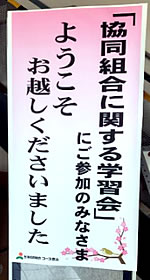 「協同組合に関する学習会」
にご参加のみなさま
ようこそ
お越しくださいました